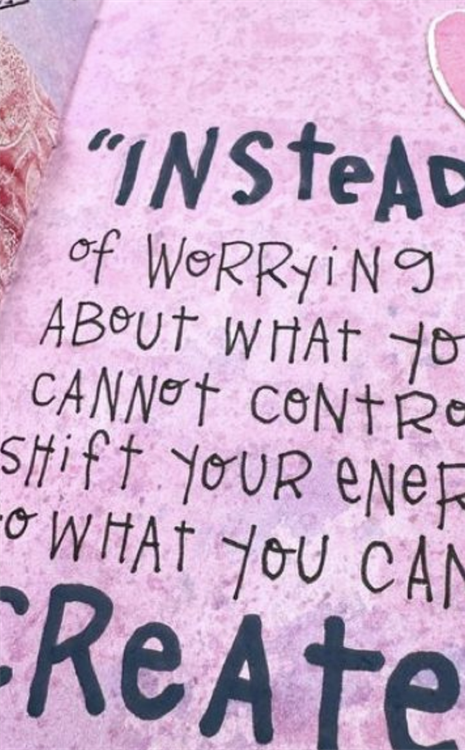 "INSteAD
of WoRRyiNg
ABoUt WHAt yo
CANNot CoNtRo
SHift yoUR eNeR
o WHAt yoU CAN
CReAte